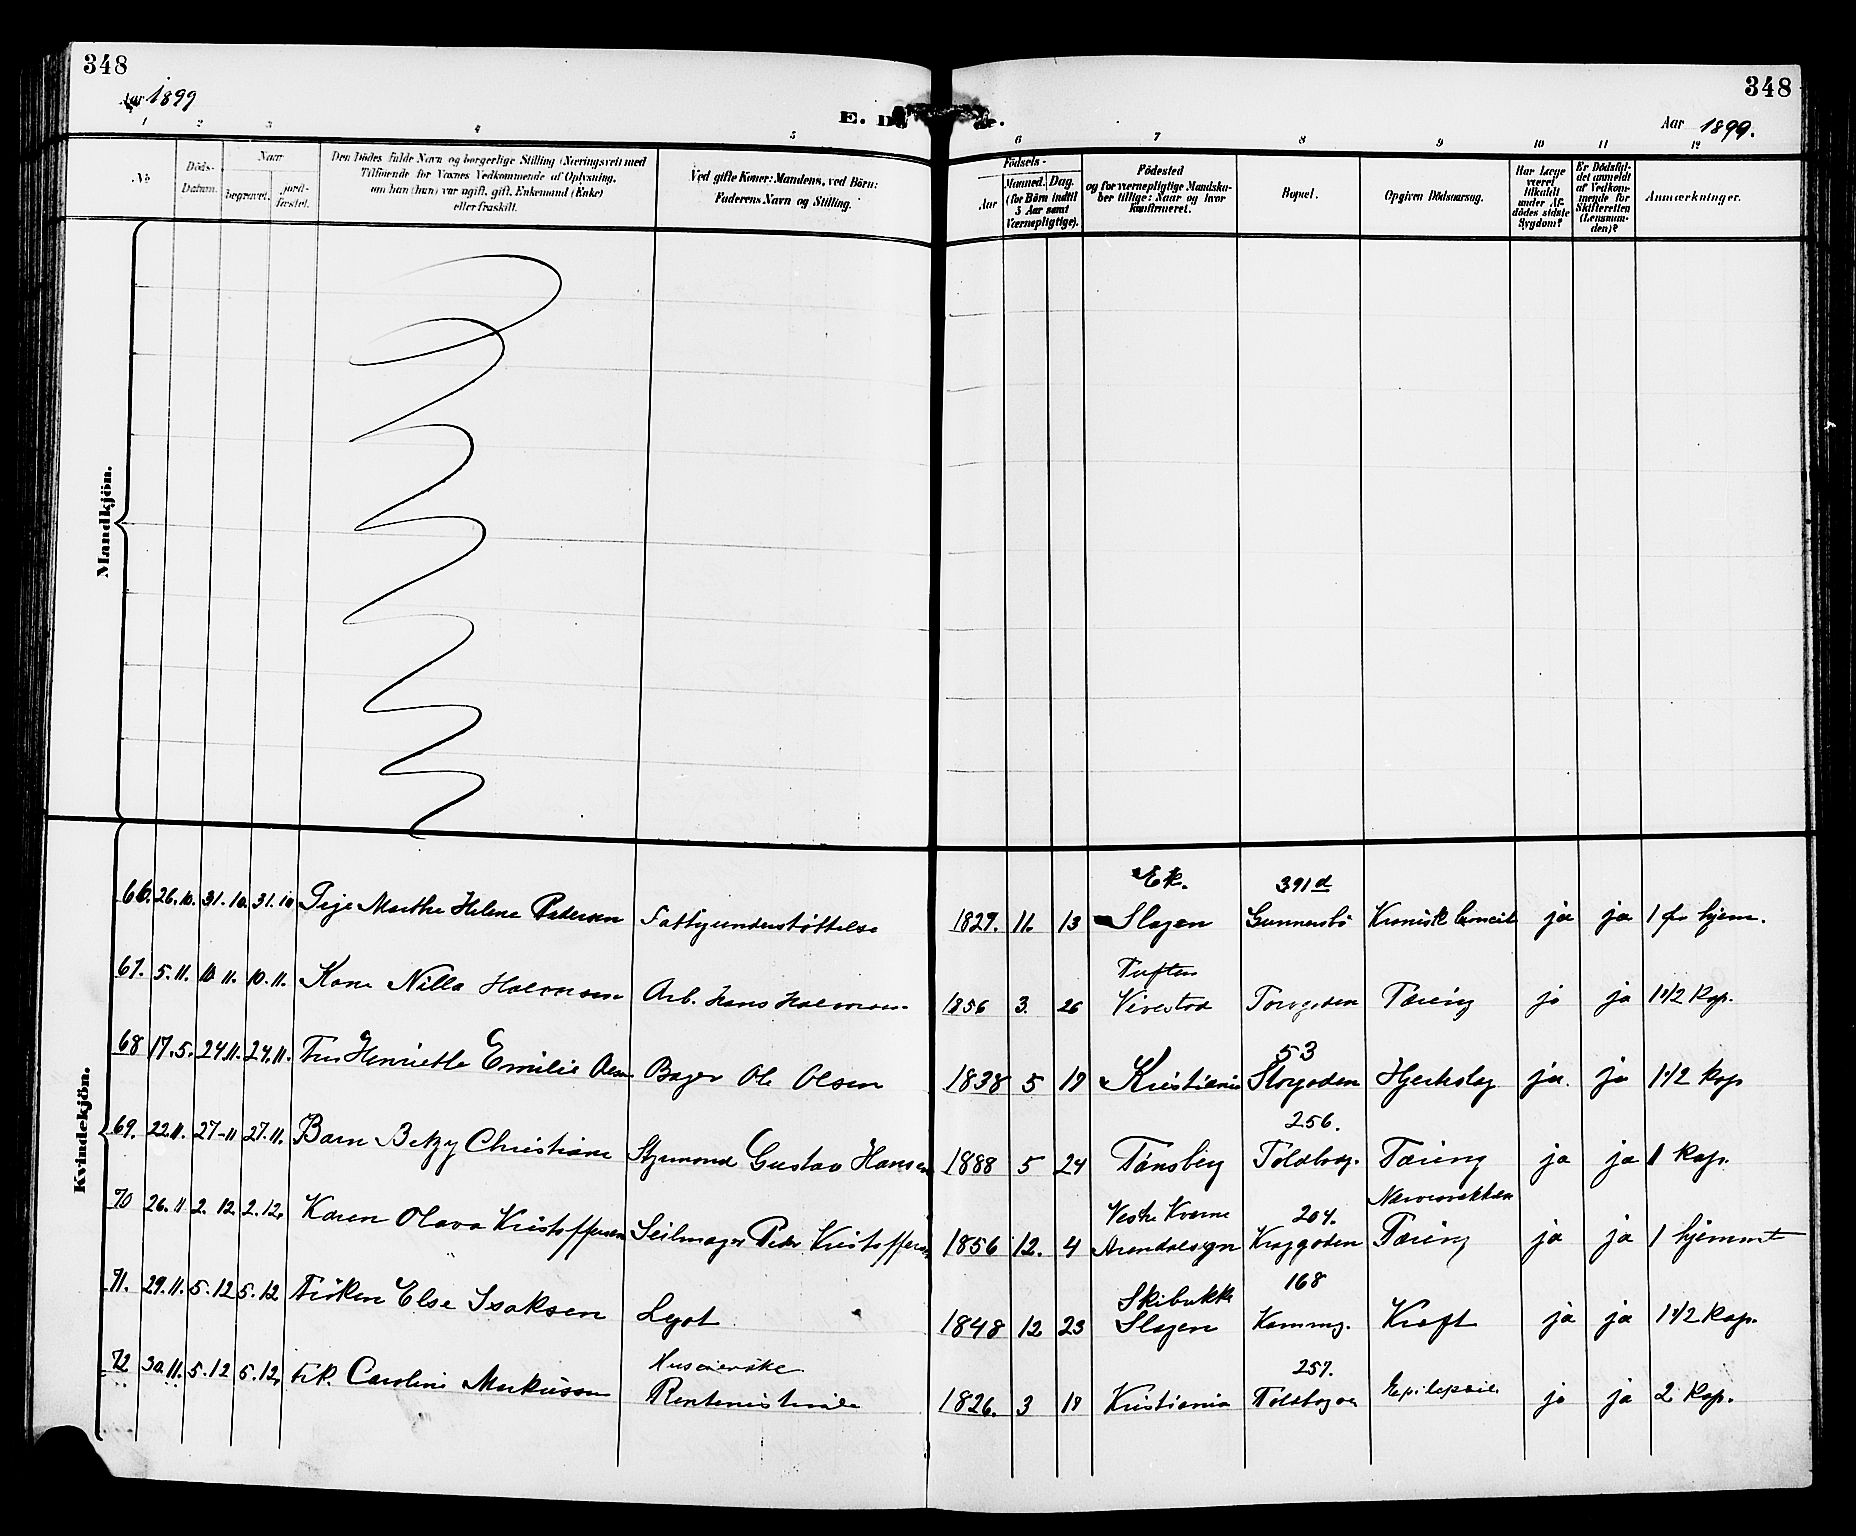 348
348
Aar 1899
Aar 1899.
1 2 3 4 5 6 7 8 9 10 11 12
No
Döds-Datum.
Naar
begravet.
jord-fæstet.
Den Dödes fulde Navn og borgerlige Stilling (Næringsvei) med
Tilföiende for Voxnes Vedkommende af Oplysning,
om han (hun) var ugift, gift, Enkemand (Enke)
eller fraskilt.
Ved gifte Koner: Mandens, ved Börn:
Faderens Navn og Stilling.
Födsels-
Aar
Maaned. Dag.
(for Börn indtil
5 Aar samt
Værnepligtige).
Födested
og for værnepligtige Mandska-
ber tillige: Naar og hvor
Konfirmeret.
Bopæl.
Opgiven Dödsaarsag.
Har Læge
været
tilkaldt
under Af-
dödes sidste
Sygdom?
Er Dödsfal-
det anmeldt
af Vedkom-
mende for
Skifteretten
(Lensman-
den)?
Anmærkninger.
Mandkjön.
Kvindekjön.
Ek. 391d
66. 26.10. 31.10. 31.10 Pige Marthe Helene Pedersen Fattigunderstøttelse 1829. 11. 13 Slagen Gunnersbö Kronisk ja ja 1 hjem.
Tuften
67. 5.11. 10.11. 10.11. Kone Nilla Halvorsen Arb. Hans Halvorsen 1856 3. 26 Vivestad Torvgaden Tæring ja ja 1 1/2 Kap.
53
68 17.5. 24.11. 24.11. Fru Henriette Emilie Olsen Bager Ole Olsen 1838 5 19 Kristiania Storgaden Hjerteslag ja. ja 1 1/2 Kap
256.
69. 22.11. 27-11 27.11. Barn Betzy Christiane Styrmand Gustav Hansen 1888 5 24 Tønsberg Toldbodg. Tæring ja ja 1 Kap.
Vestre Kverne 204.
70 26.11 2.12. 2.12. Karen Olava Kristoffersen Seilmager Peder Kristoffersen 1856 12. 4 Arendalsegn Kroggaden Tæring ja ja 1 hjemmet
Skibakke 168
71. 29.11. 5.12 5.12 Frøken Else Isaksen Legat 1848 12 23 Slagen Kammeg. Kræft ja ja 1 1/2 Kap.
Huseierske 257.
72 30.11. 5.12 5.12. Frk. Caroline Markussen Rentenistinde 1826. 3 19 Kristiania Toldbogaden Epilepsie ja ja 2 Kap.